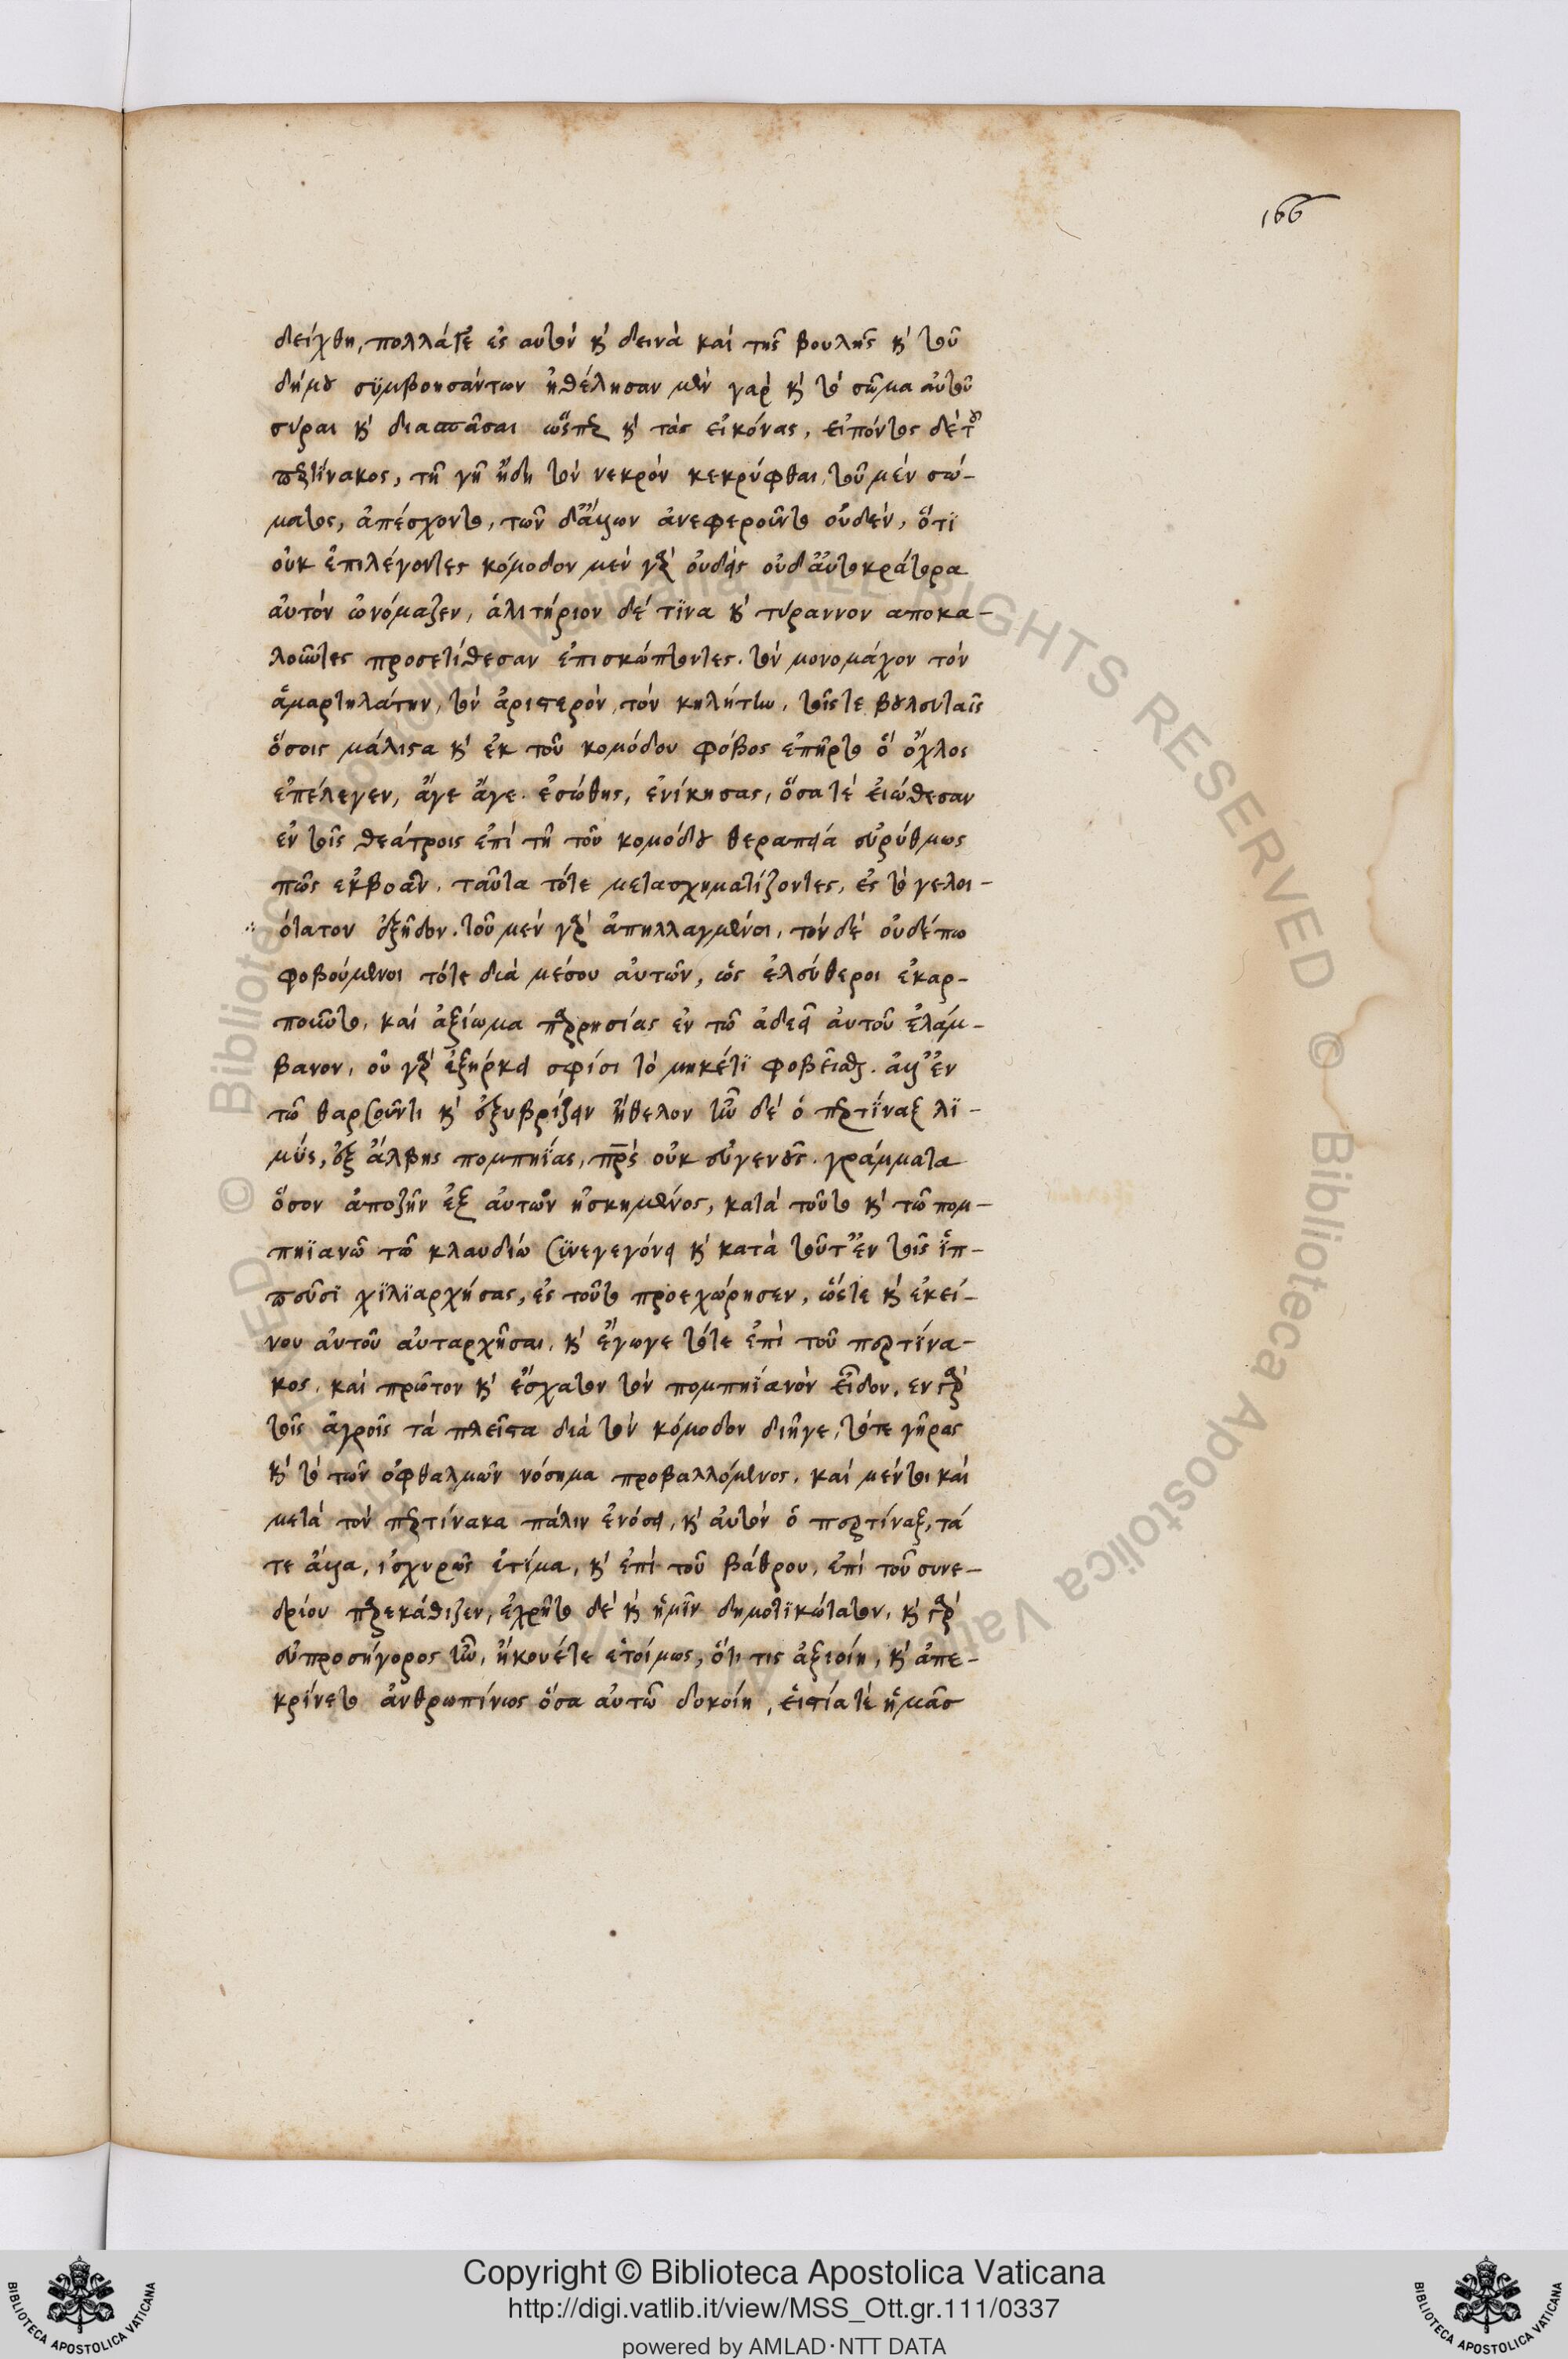 166
δείχθη, πολλά τε ἐς αὐτὸν κ̀ δεινὰ καὶ τῆς βουλῆς κ̀ τοῦ
δήμου συμβοησάντων ἠθέλησαν μὲν γὰρ κ̀ τὸ σῶμα αὐτοῦ
σύραι κ̀ διασπᾶσαι ὥσπερ κ̀ τὰς εἰκόνας, εἰπόντος δὲ τοῦ
περτίνακος, τῆ γῆ ἤδη τὸν νεκρὸν κεκρύφθαι, τοῦ μὲν σώ-
ματος, ἀπέσχοντο, τῶν δ' ἄλλων ἀνεφεροῦντο οὐδὲν, ὅτι
οὐκ ἐπιλέγοντες κόμοδον μὲν γὰρ οὐδεὶς οὐδ' αὐτοκράτορα
αὐτὸν ὠνόμαζεν, ἀλιτήριον δέ τινα κ̀ τύραννον αποκα-
λοῦντες προσετίθεσαν ἐπισκώπτοντες. τὸν μονομάχον τὸν
ἁμαρτηλάτην, τὸν ἀριστερὸν, τὸν κηλήτην, τοῖς τε βουλευταῖς
ὅσοις μάλιστα κ̀ ἐκ τοῦ κομόδου φόβος ἐπῆρτο ὁ ὄχλος
ἐπέλεγεν, ἄγε ἄγε. ἐσώθης, ἐνίκησας, ὅσα τὲ εἰώθεσαν
ἐν τοῖς θεάτροις ἐπὶ τῆ τοῦ κομόδου θεραπεία εὐρύθμως
πῶς ἐκβοᾶν. ταῦτα τότε μετασχηματίζοντες, ἐς τὸ γελοι-
ότατον ἐξῆδον. τοῦ μὲν γὰρ ἀπηλλαγμένοι, τὸν δὲ οὐδέπω
φοβούμενοι τότε διὰ μέσου αὐτῶν, ὡς ἐλεύθεροι ἐκαρ-
ποῦντο, καὶ ἀξίωμα παρρησίας ἐν τῶ ἀδεεῖ αὐτοῦ ἐλάμ-
βανον, οὐ γὰρ ἐξήρκει σφίσι τὸ μηκέτι φοβεῖσθαι. ἀλλ' ἐν
τῶ θαρσοῦντι κ̀ ἐξυβρίζειν ἤθελον ἦν δὲ ὁ περτίναξ λι-
μὺς, ἐξ ἄλβης πομπηΐας, πρὸς οὐκ εὐγενοῦς. γράμματα
ὅσον ἀποζῆν ἐξ αὐτῶν ἠσκημένος, κατὰ τοῦτο κ̀ τῶ πομ-
πηϊανῶ τῶ κλαυδίω συνεγεγόνει κ̀ κατὰ τοῦτ' ἐν τοῖς ἱπ-
πεῦσι χιλιαρχήσας, ἐς τοῦτο προεχώρησεν, ὥστε κ̀ ἐκεί-
νου αὐτοῦ αὐταρχῆσαι, κ̀ ἔγωγε τότε ἐπὶ τοῦ περτίνα-
κος, καὶ πρῶτον κ̀ ἔσχατον τὸν πομπηϊανὸν εἶδον, ἐν γὰρ
τοῖς ἀγροῖς τὰ πλεῖστα διὰ τὸν κόμοδον διῆγε, τότε γῆρας
κ̀ τὸ τῶν ὀφθαλμῶν νόσημα προβαλλόμενος. καὶ μέντοι καὶ
μετὰ τὸν περτίνακα πάλιν ἐνόσει, κ̀ αὐτὸν ὁ περτίναξ, τά
τε ἄλλα, ἰσχυρῶς ἐτίμα, κ̀ ἐπὶ τοῦ βάθρου, ἐπὶ τοῦ συνε-
δρίου παρεκάθιζεν, ἐχρῆτο δὲ κ̀ ἡμῖν δημοτικώτατον, κ̀ γὰρ
εὐπροσήγορος ἦν, ἤκουέ τε ἑτοίμως, ὅτι τις ἀξιοίη, κ̀ ἀπε-
κρίνετο ἀνθρωπίνως ὅσα αὐτῶ δοκοίη, εἱστία τὲ ἡμᾶς
© Biblioteca Apostolica Vaticana ALL RIGHTS RESERVED
Copyright © Biblioteca Apostolica Vaticana
http://digi.vatlib.it/view/MSS_Ott.gr.111/0337
powered by AMLAD·NTT DATA
BIBLIOTECA APOSTOLICA VATICANA
BIBLIOTECA APOSTOLICA VATICANA